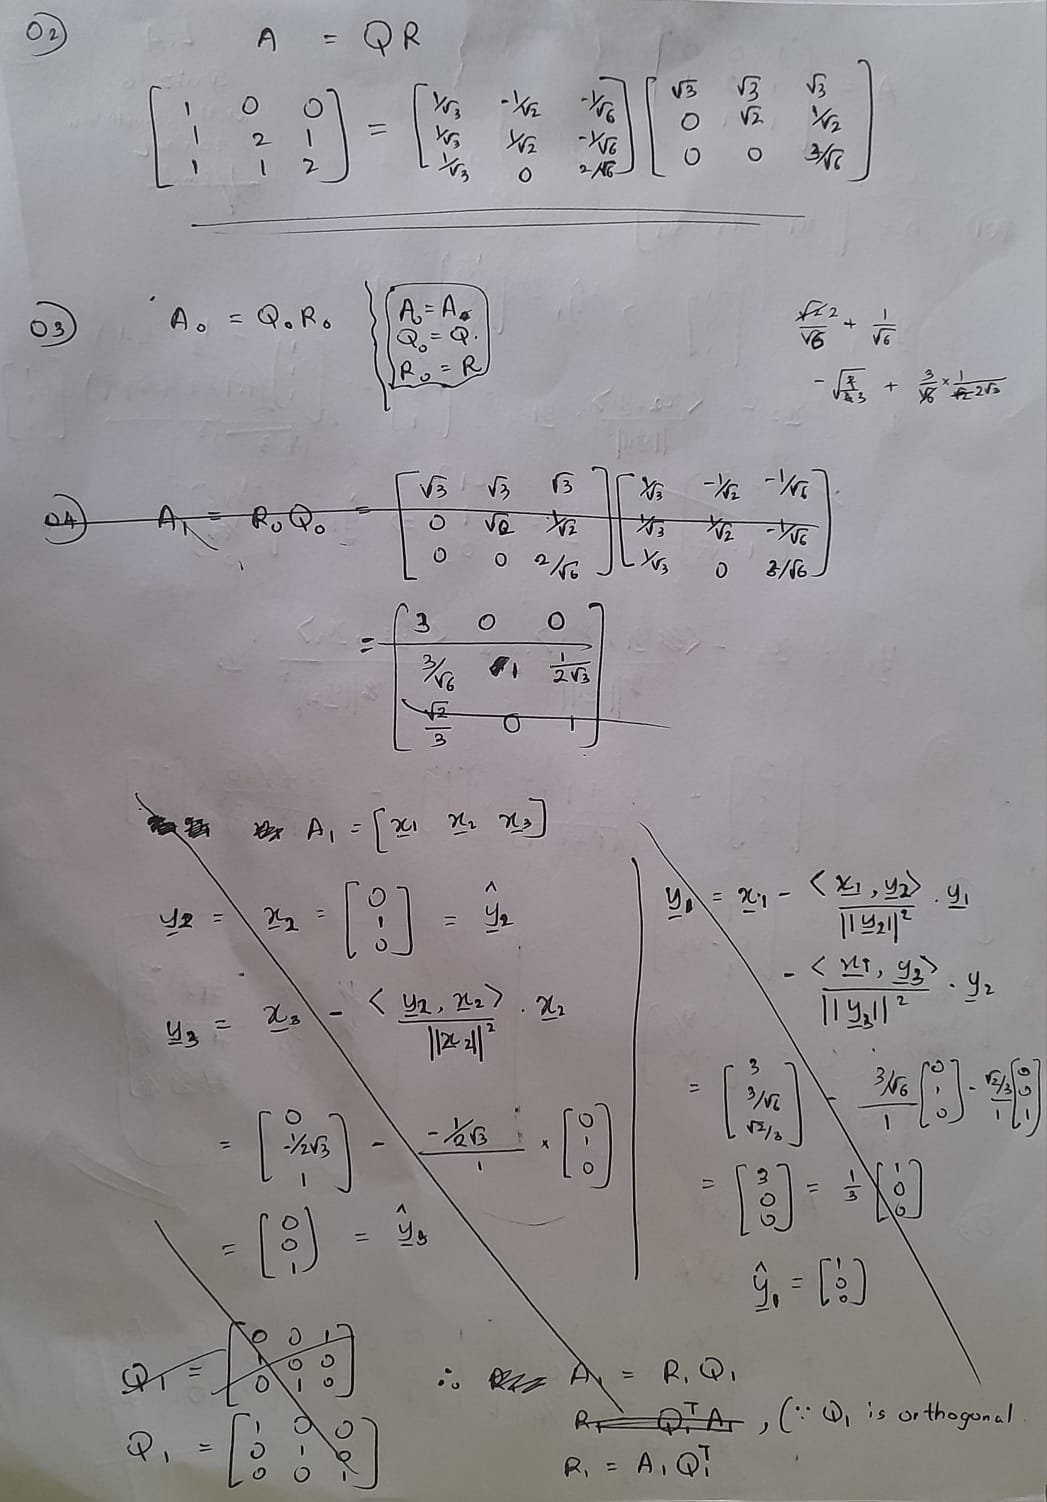 02)
A = QR
[1 0 0; 1 2 1; 1 1 2] = [1/√3 -1/√2 -1/√6; 1/√3 1/√2 -1/√6; 1/√3 0 2/√6] [√3 √3 √3; 0 √2 1/√2; 0 0 3/√6]
03)
A₀ = Q₀R₀
A₀ = A
Q₀ = Q.
R₀ = R
2/√6 + 1/√6
04) A₁ = R₀Q₀ = [√3 √3 √3; 0 √2 1/√2; 0 0 2/√6] [1/√3 -1/√2 -1/√6; 1/√3 1/√2 -1/√6; 1/√3 0 2/√6]
= [3 0 0; 3/√6 1 1/2√3; √2/3 0 1]
A₁ = [x₁ x₂ x₃]
y₂ = x₂ = [0; 1; 0] = ŷ₂
y₃ = x₃ - <y₂, x₂>/||x₂||² . x₂
= [0; -1/2√3; 1] - (-1/2√3)/1 × [0; 1; 0]
= [0; 0; 1] = ŷ₃
y₁ = x₁ - <x₁, y₂>/||y₂||² . y₁
- <x₁, y₃>/||y₃||² . y₂
= [3; 3/√6; √2/3] - (3/√6)/1 [0; 1; 0] - (√2/3)/1 [0; 0; 1]
= [3; 0; 0] = 1/3 [1; 0; 0]
ŷ₁ = [1; 0; 0]
Q₁ = [0 0 1; 1 0 0; 0 1 0]
Q₁ = [1 0 0; 0 1 0; 0 0 1]
∴ A₁ = R₁Q₁
R₁ = Q₁ᵀA₁, (∵ Q₁ is orthogonal
R₁ = A₁Q₁ᵀ